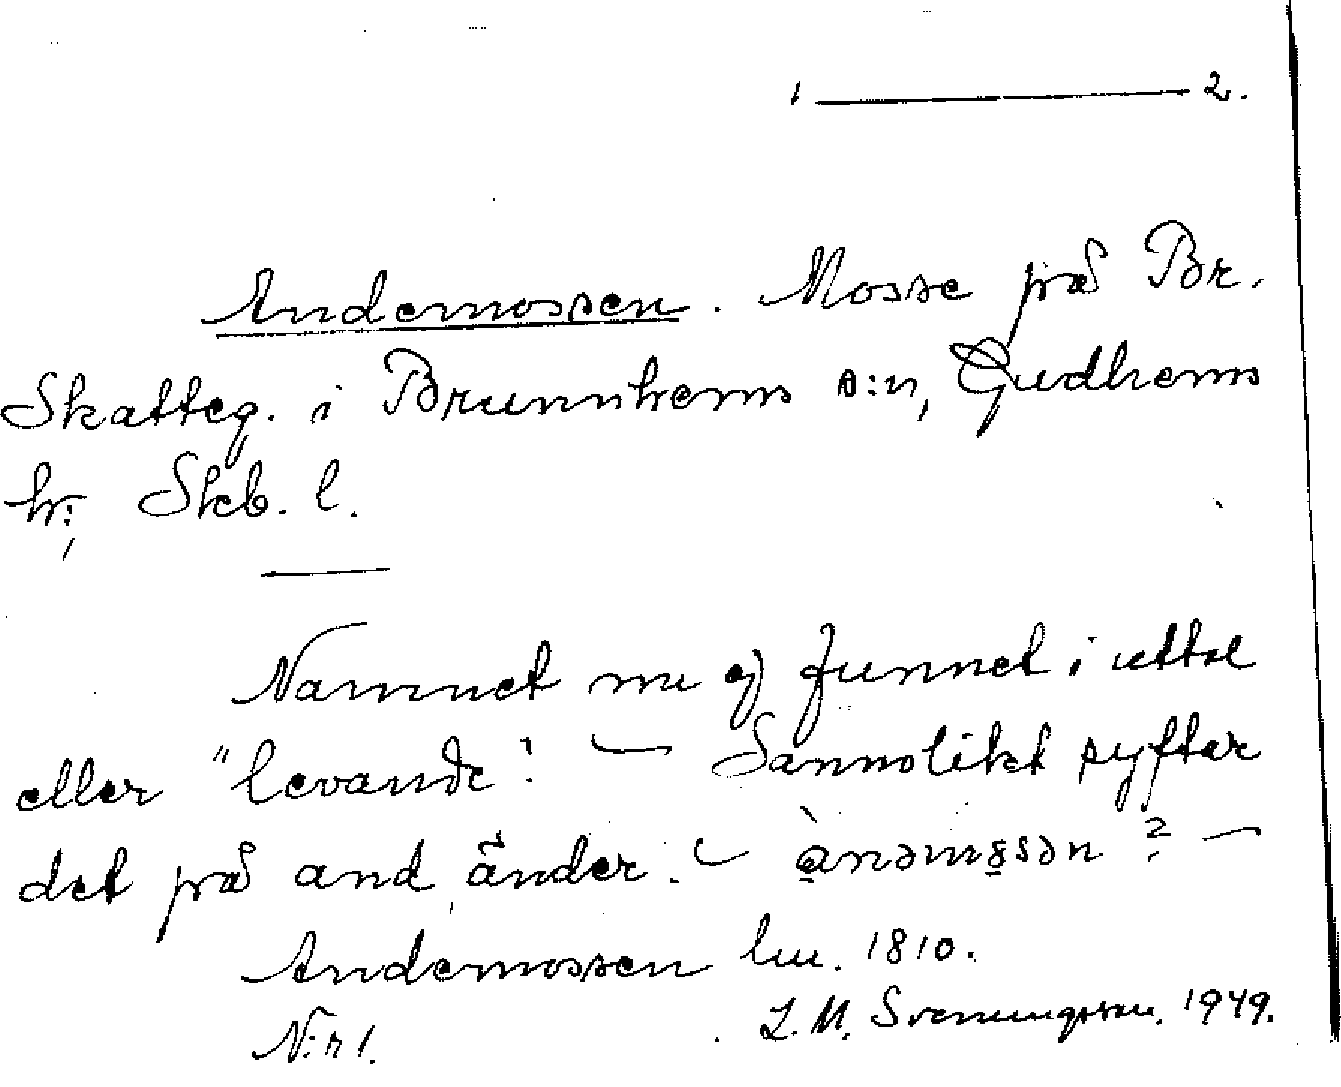 1 ——— 2.
Andemossen. Mosse på Br.
Skatteg. i Brunnhems s:n, Gudhems
hr; Skb. l.
Namnet nu ej funnet i uttal
eller "levande". — Sannolikt syftar
det på and, änder. — ànəmɞsən? —
Andemossen lm. 1810.
N:r 1. L. M. Svenungsson. 1949.